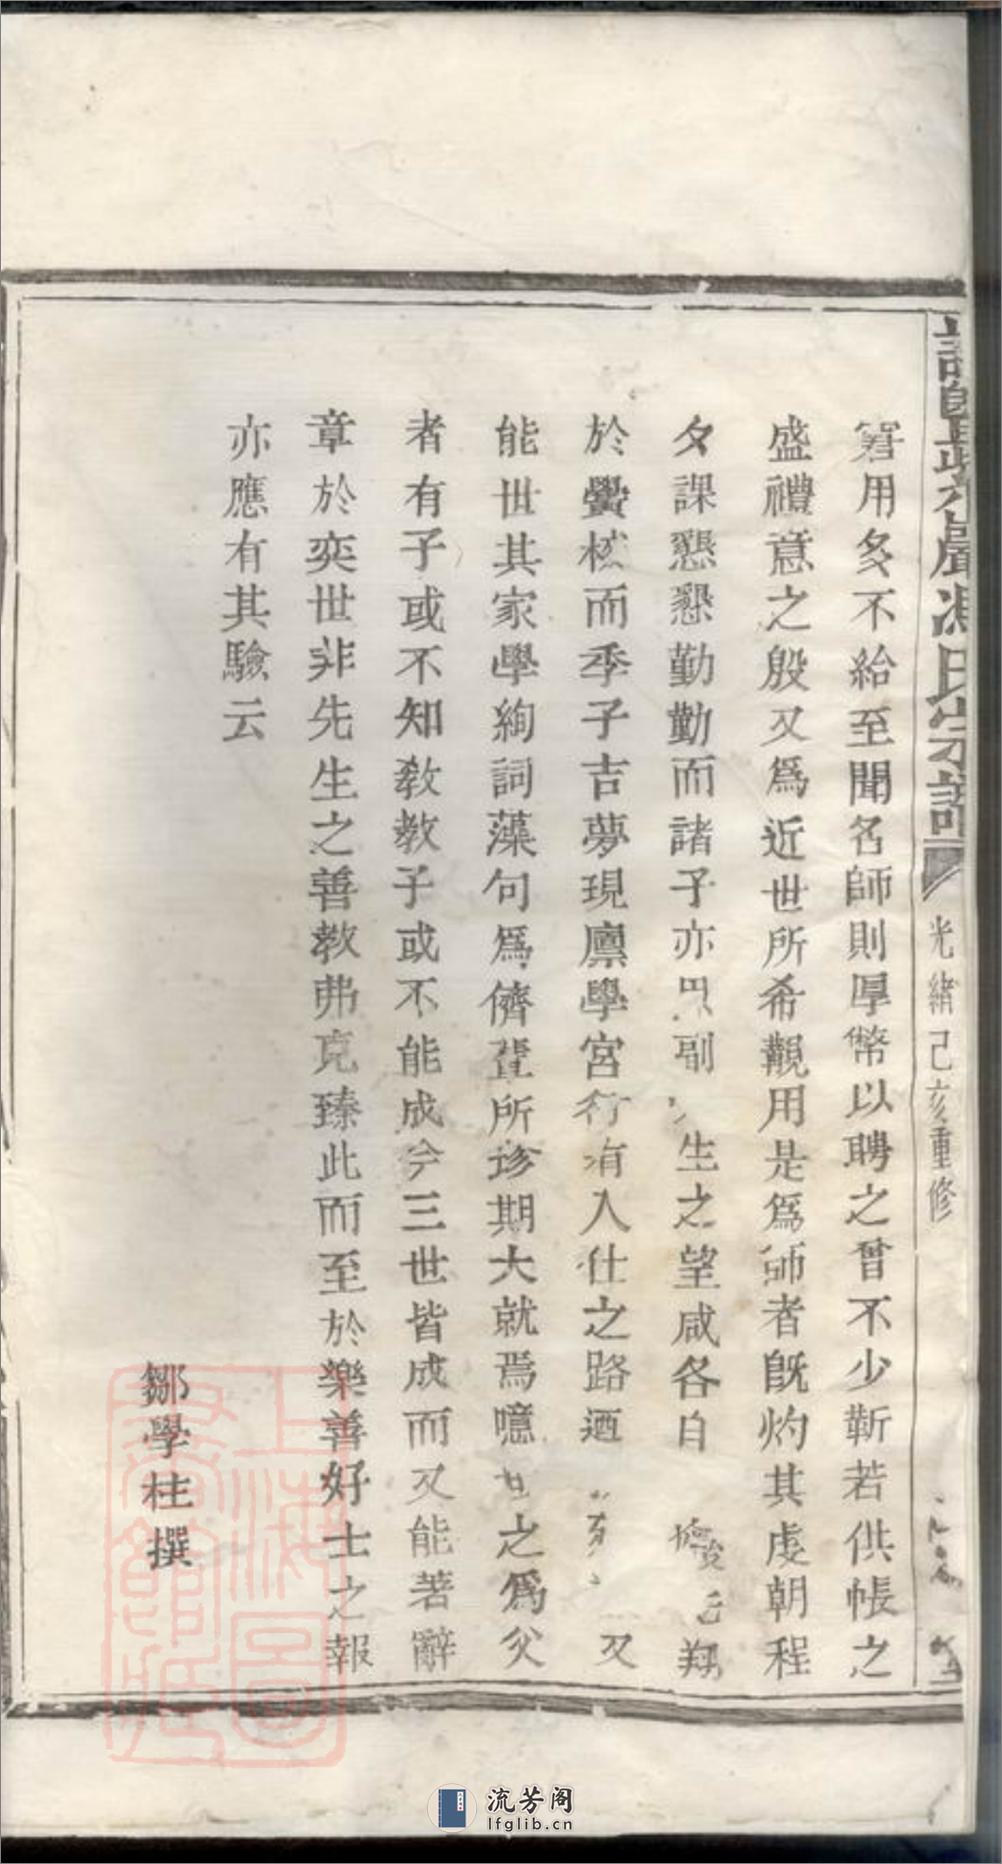 馮氏宗譜
光緒己亥重修
窘用多不給至聞名師則厚幣以聘之曾不少靳若供帳之
盛禮意之殷又爲近世所希覯用是爲師者旣灼其虔朝程
夕課懇懇勤勤而諸子亦副生之望咸各自翔
於黌而季子吉夢現廩學宮行入仕之路迺又
能世其家學絢詞藻句爲儕輩所診期大就焉噫之爲父
者有子或不知敎教子或不能成今三世皆成而又能著辭
章於奕世非先生之善教弗克臻此而至於樂善好士之報
亦應有其驗云
鄒學柱撰
上海圖書館藏
流芳阁
lfglib.cn